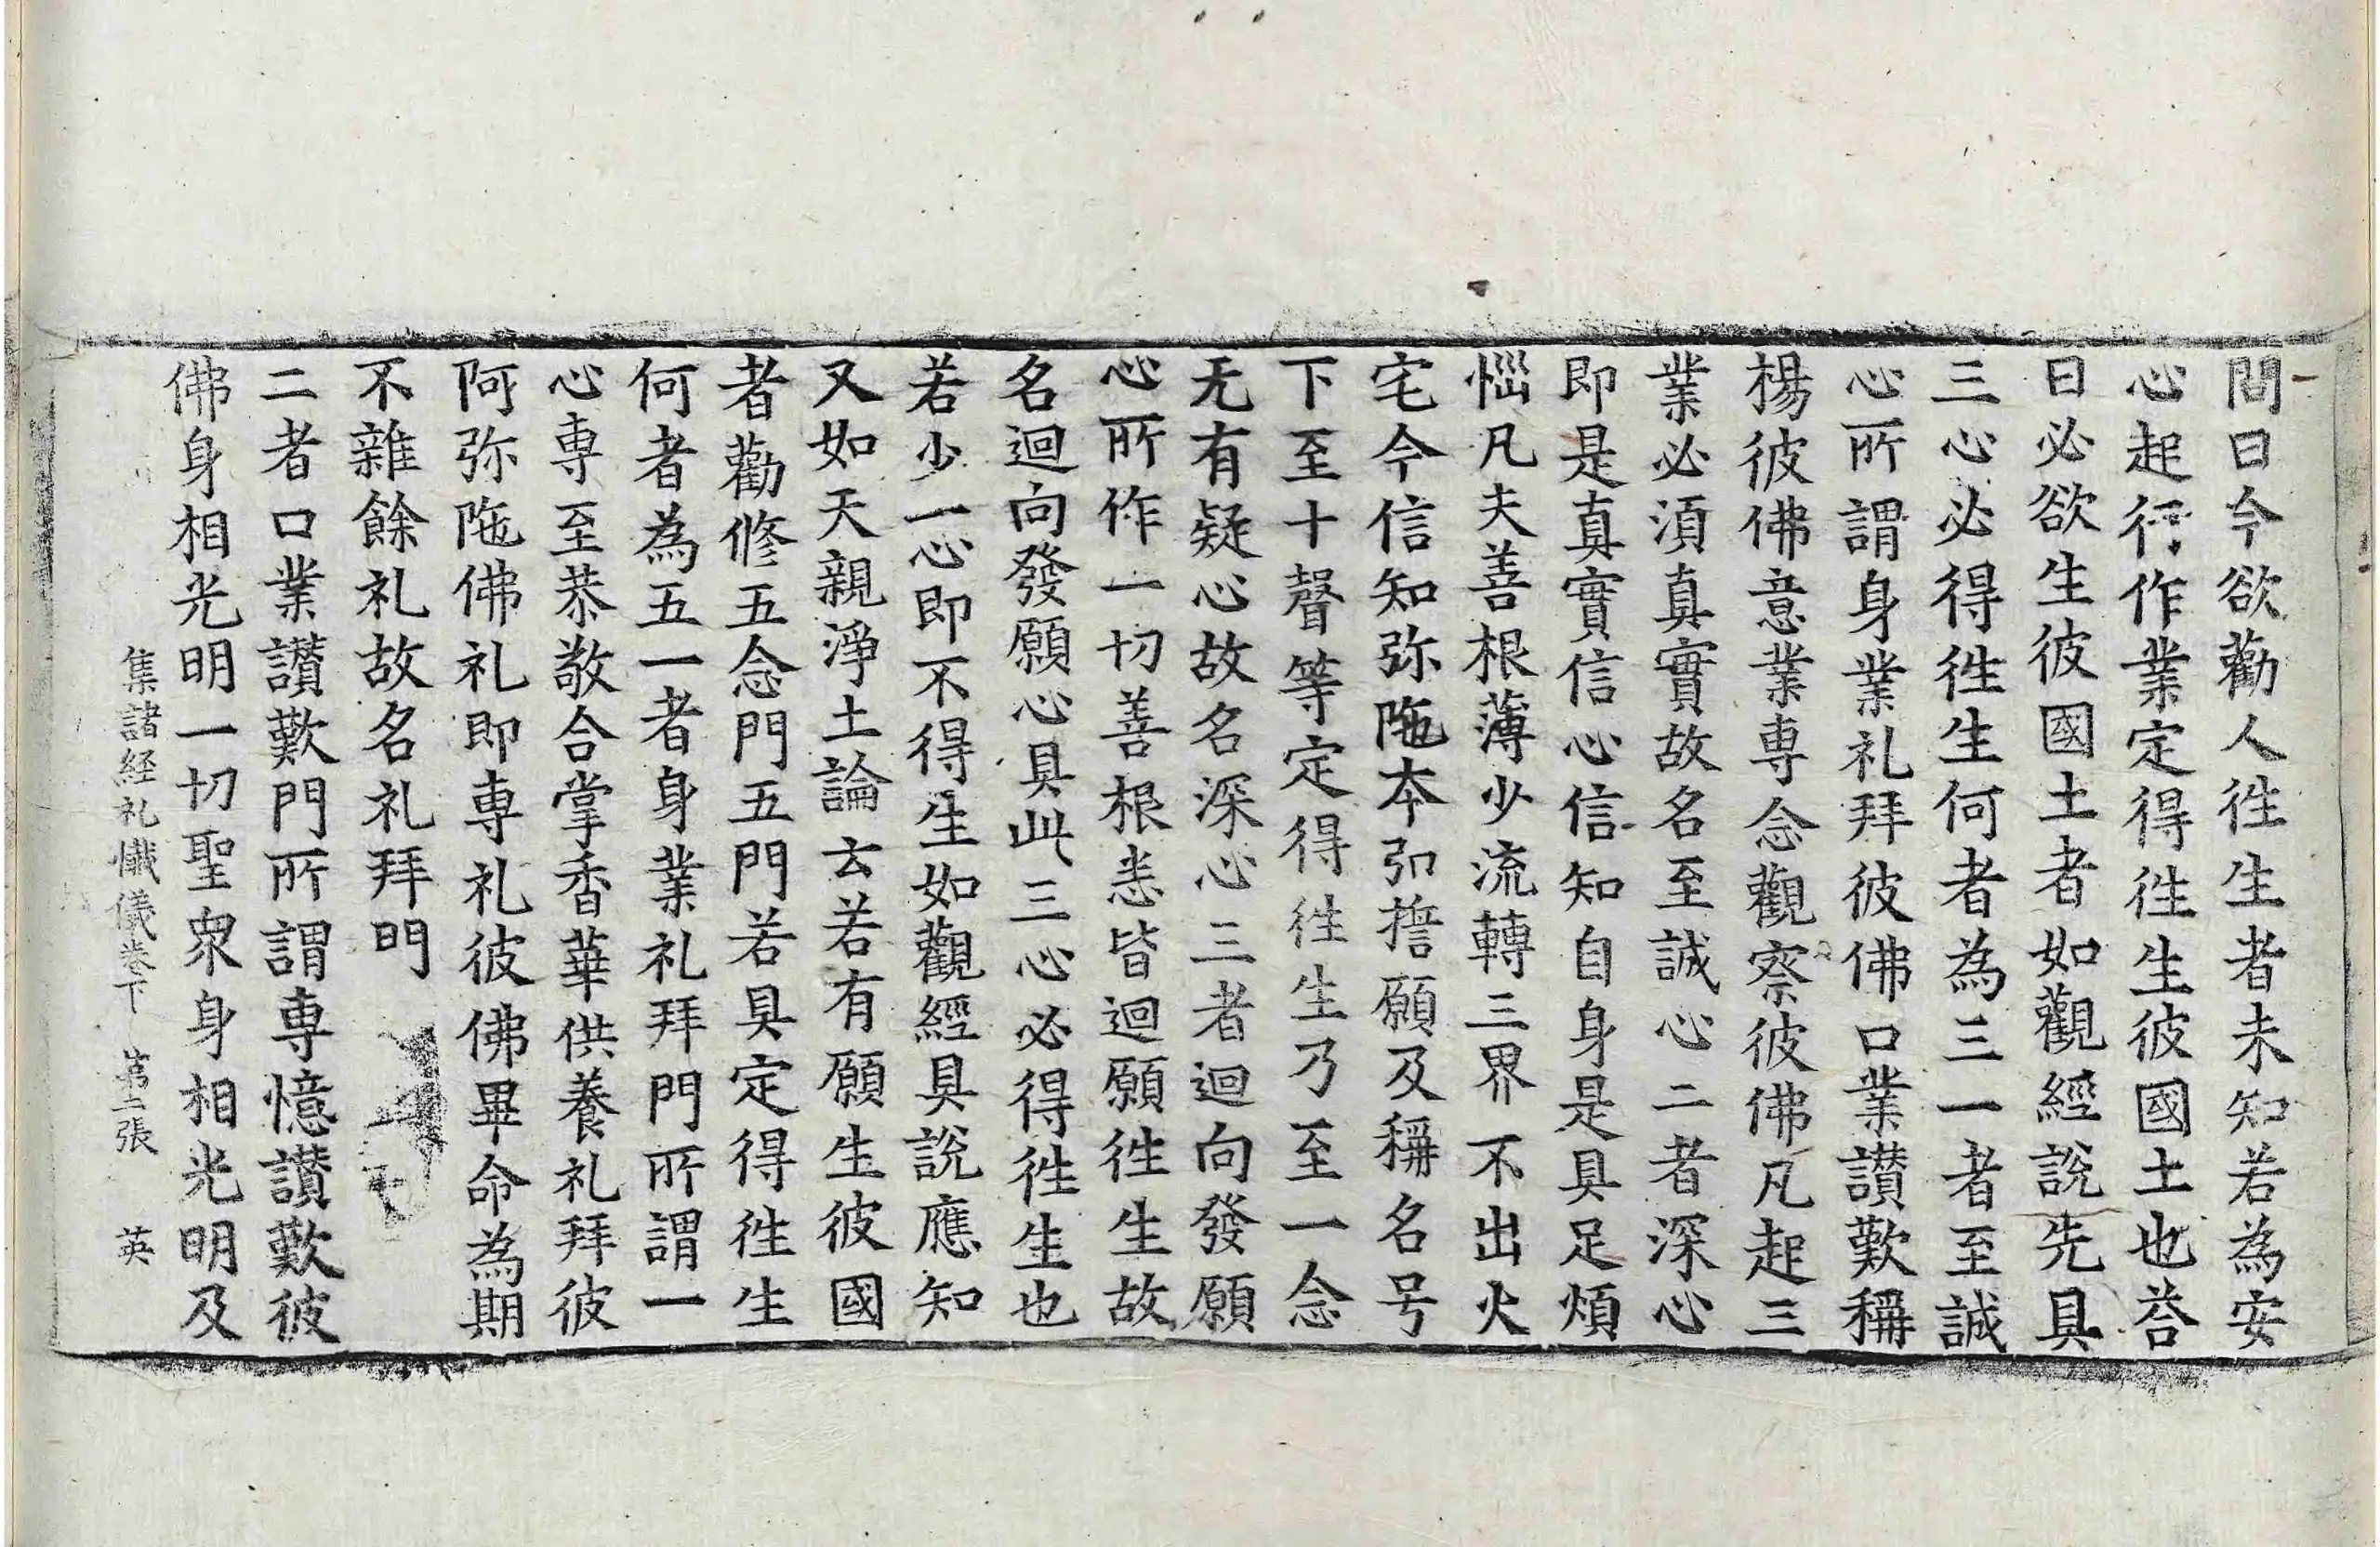 問曰今欲勸人徃生者未知若為安
心起行作業定得徃生彼國土也荅
曰必欲生彼國土者如觀經說先具
三心必得徃生何者為三一者至誠
心所謂身業礼拜彼佛口業讃歎稱
楊彼佛意業専念觀察彼佛凡起三
業必湏真實故名至誠心二者深心
即是真實信心信知自身是具足煩
惱凡夫善根薄少流轉三界不出火
宅今信知弥陁本弘擔願及稱名号
下至十聲等定得徃生乃至一念
无有疑心故名深心三者迴向發願
心所作一切善根悉皆迴願徃生故
名迴向發願心具此三心必得徃生也
若少一心即不得生如觀經具說應知
又如天親淨土論云若有願生彼國
者勸修五念門五門若具定得徃生
何者為五一者身業礼拜門所謂一
心専至恭敬合掌香華供養礼拜彼
阿弥陁佛礼即専礼彼佛畢命為期
不雜餘礼故名礼拜門
二者口業讃歎門所謂専憶讃歎彼
佛身相光明一切聖衆身相光明及
集諸経礼懺儀卷下 第二張 英